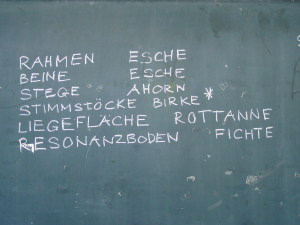 RAHMEN ESCHE
BEINE ESCHE
STEGE AHORN
STIMMSTÖCKE BIRKE*
LIEGEFLÄCHE ROTTANNE
RESONANZBODEN FICHTE